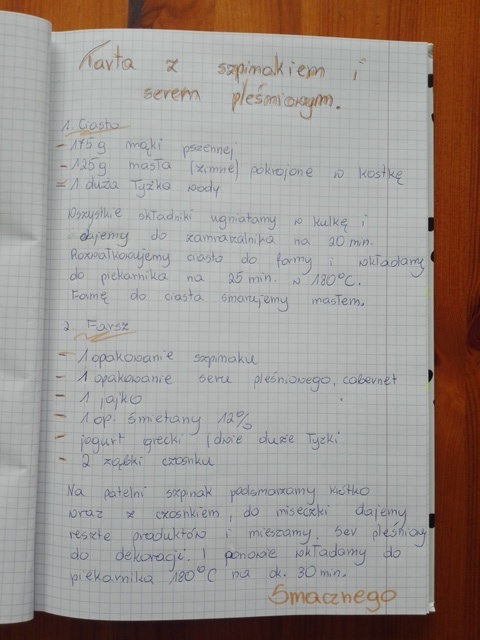 Tarta z szpinakiem i
serem pleśniowym.
1. Ciasto
- 175g mąki pszennej
- 125g masła (zimne) pokrojone w kostkę
- 1 duża łyżka wody
Wszystkie składniki ugniatamy w kulkę i
dajemy do zamrażalnika na 20 min.
Rozwałkowujemy ciasto do formy i wkładamy
do piekarnika na 25 min. w 180°C.
Formę do ciasta smarujemy masłem.
2. Farsz
- 1 opakowanie szpinaku
- 1 opakowanie seru pleśniowego, cabernet
- 1 jajko
- 1 op. śmietany 12%
- jogurt grecki (dwie duże łyżki
- 2 ząbki czosnku
Na patelni szpinak podsmażamy krótko
wraz z czosnkiem, do miseczki dajemy
resztę produktów i mieszamy. Ser pleśniowy
do dekoracji. I ponowie wkładamy do
piekarnika 180°C na ok. 30 min.
Smacznego